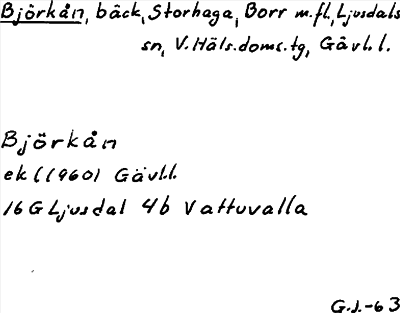 Björkån, bäck, Storhaga, Borr m.fl, Ljusdals
sn, V. Häls. doms. tg, Gävl.l.
Björkån
ek (1960) Gävl.l.
16 G Ljusdal 4b Vattuvalla
G.J.-63